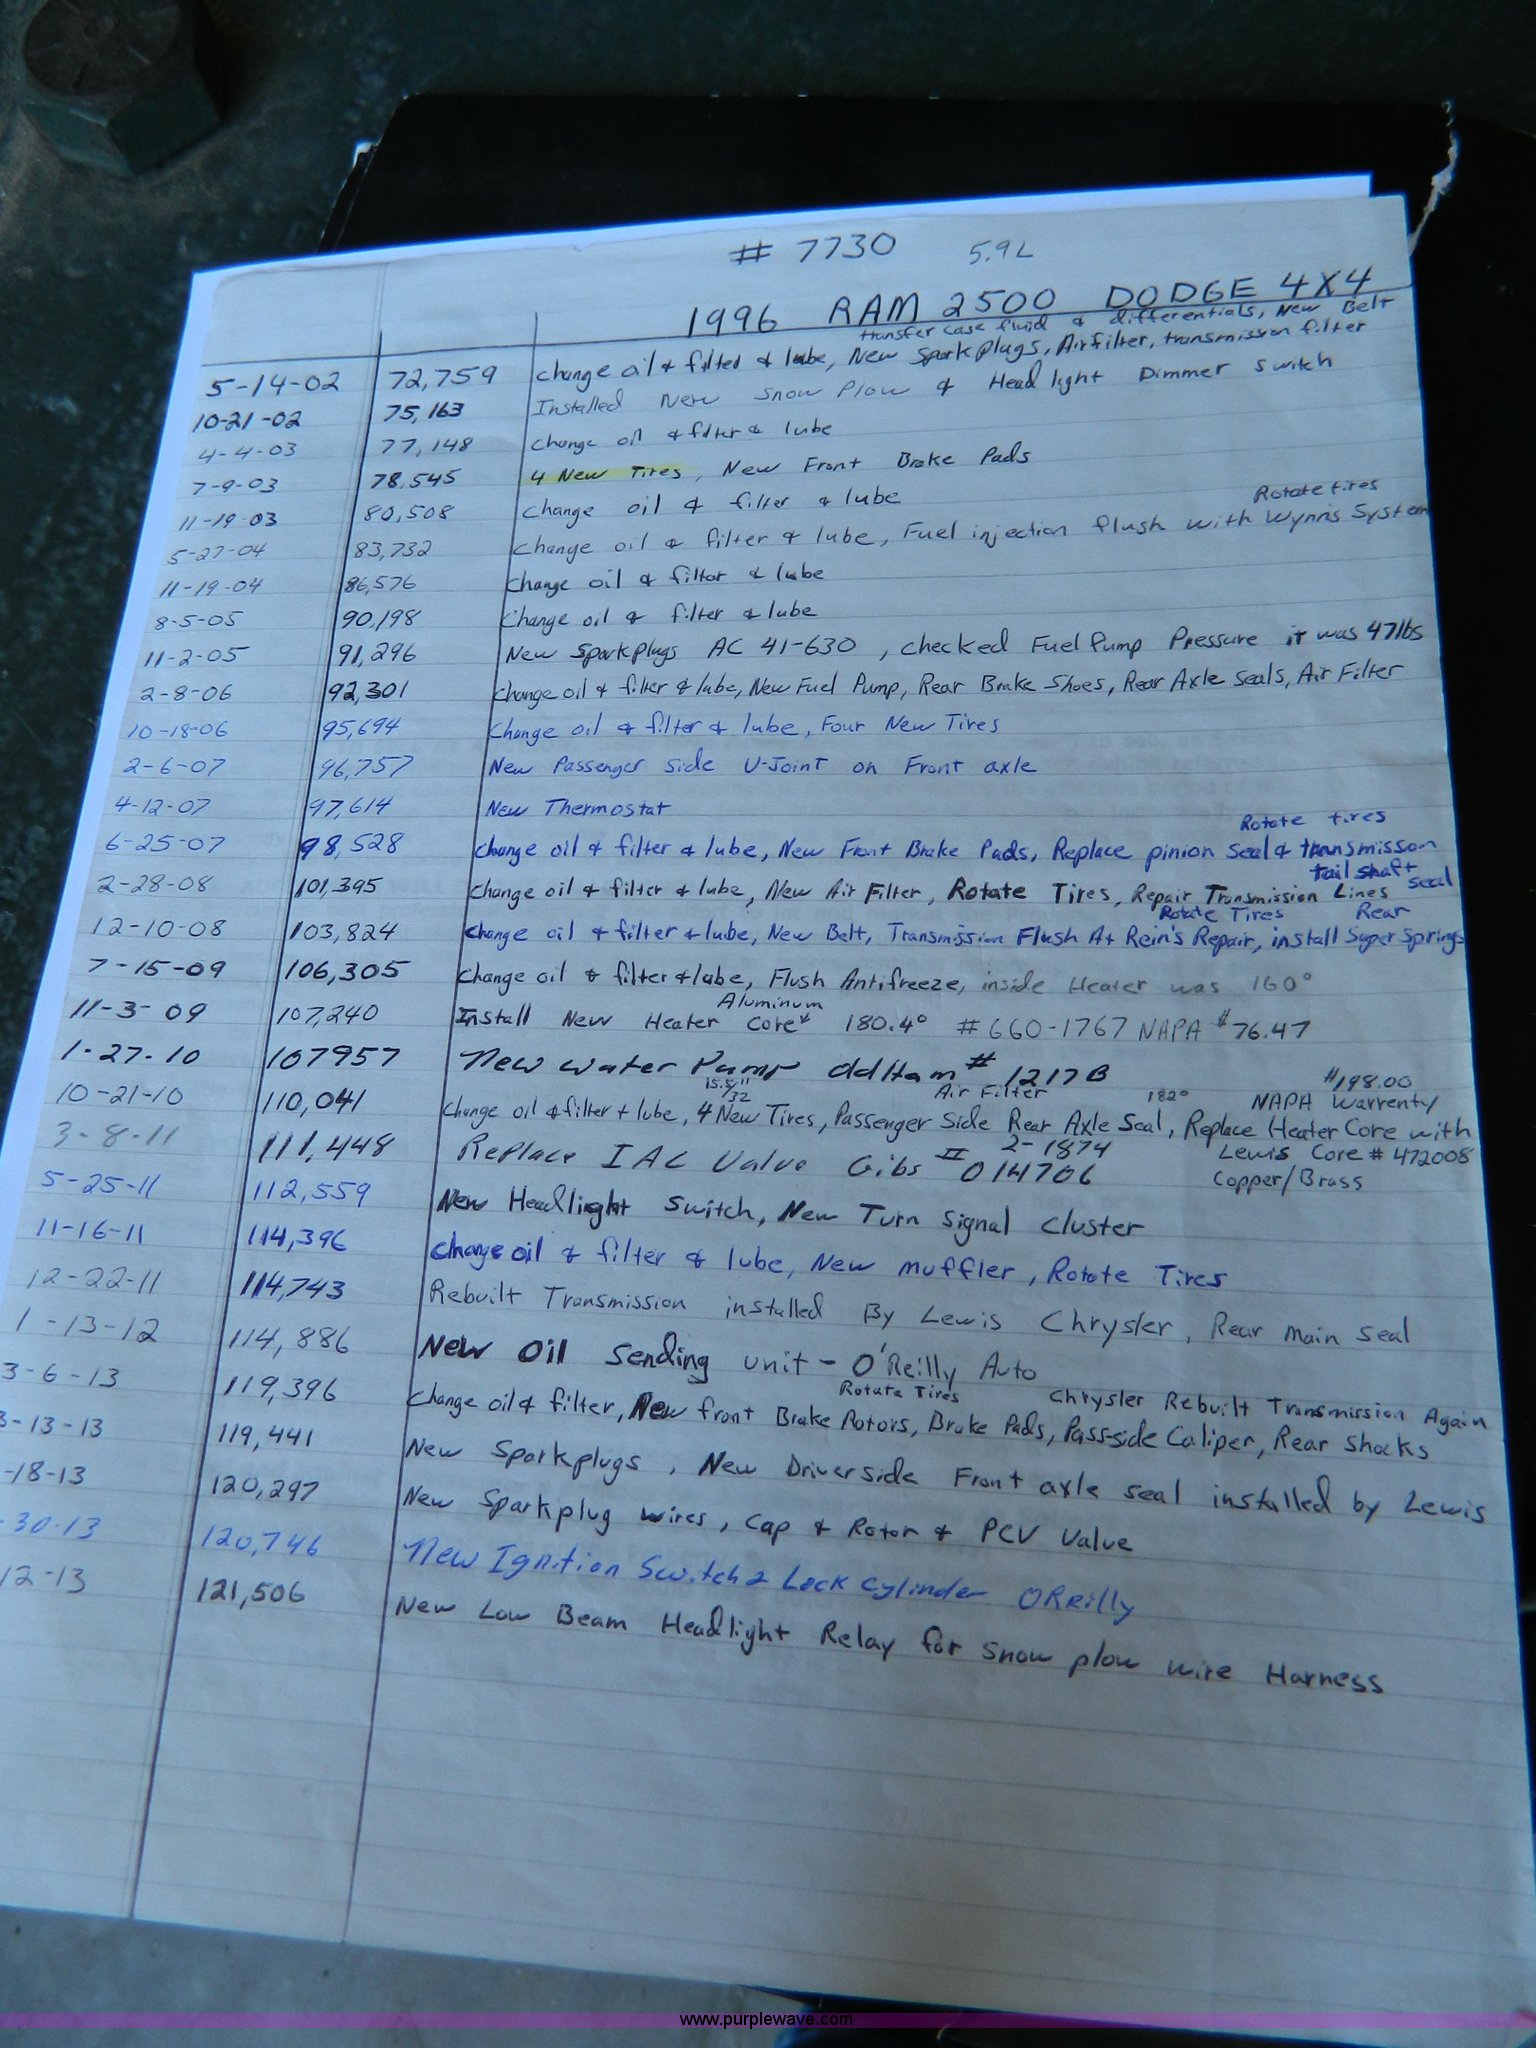 # 7730 5.9L
1996 RAM 2500 DODGE 4X4
transfer case fluid & differentials, New Belt
5-14-02 72,759 Change oil & filter & lube, New Sparkplugs, Airfilter, transmission filter
10-21-02 75,163 Installed New Snow Plow & Headlight Dimmer Switch
4-4-03 77,148 Change oil & filter & lube
7-9-03 78,545 4 New Tires, New Front Brake Pads
11-19-03 80,508 Change oil & filter & lube
Rotate tires
5-27-04 83,732 Change oil & filter & lube, Fuel injection flush with Wynns System
11-19-04 86,576 Change oil & filter & lube
8-5-05 90,198 Change oil & filter & lube
11-2-05 91,296 New Sparkplugs AC 41-630, checked Fuel Pump Pressure it was 47lbs
2-8-06 92,301 Change oil & filter & lube, New Fuel Pump, Rear Brake Shoes, Rear Axle Seals, Air Filter
10-18-06 95,694 Change oil & filter & lube, Four New Tires
2-6-07 96,757 New Passenger side U-Joint on Front axle
4-12-07 97,614 New Thermostat
Rotate tires
6-25-07 98,528 Change oil & filter & lube, New Front Brake Pads, Replace pinion Seal & transmisson
tail shaft seal
2-28-08 101,395 Change oil & filter & lube, New Air Filter, Rotate Tires, Repair Transmission Lines
Rotate Tires Rear
12-10-08 103,824 Change oil & filter & lube, New Belt, Transmission Flush At Rein's Repair, install Super Springs
7-15-09 106,305 Change oil & filter & lube, Flush Antifreeze, inside Heater was 160°
Aluminum
11-3-09 107,240 Install New Heater Core* 180.4° #660-1767 NAPA $76.47
1-27-10 107957 New Water Pump # 1217B
15.5/32 Air Filter 182° $198.00 NAPA Warrenty
10-21-10 110,041 Change oil & filter + lube, 4 New Tires, Passenger Side Rear Axle Seal, Replace Heater Core with
Lewis Core # 472008
Copper/Brass
2-1874
3-8-11 111,448 Replace IAC Valve Gibs II 014706
5-25-11 112,559 New Headlinght Switch, New Turn Signal Cluster
11-16-11 114,396 Change oil & filter & lube, New muffler, Rotate Tires
12-22-11 114,743 Rebuilt Transmission installed By Lewis Chrysler, Rear main seal
1-13-12 114,886 New Oil Sending unit - O'Reilly Auto
Rotate Tires Chrysler Rebuilt Transmission Again
3-6-13 119,396 Change oil & filter, New front Brake Rotors, Brake Pads, Pass-side Caliper, Rear Shocks
3-13-13 119,441 New Sparkplugs, New Driver side Front axle seal installed by Lewis
-18-13 120,297 New Sparkplug wires, Cap & Rotor & PCV Valve
-30-13 120,746 New Ignition Switch & Lock Cylinder OReilly
12-13 121,506 New Low Beam Headlight Relay for Snow plow wire Harness
www.purplewave.com